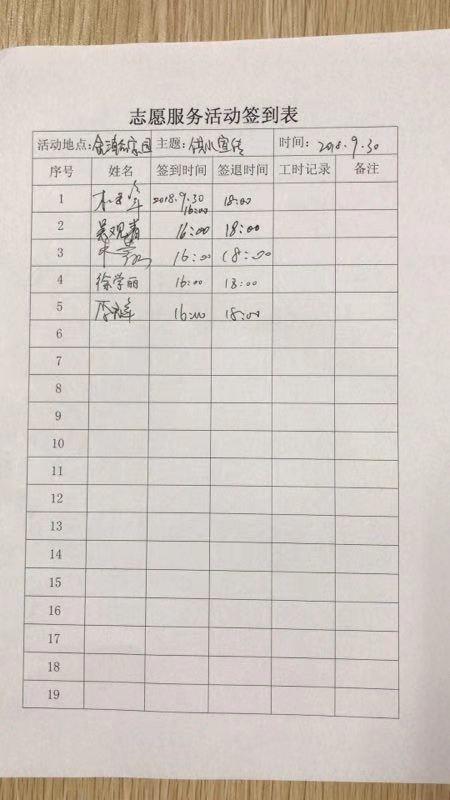 志愿服务活动签到表
活动地点: 主题: 宣传 时间: 2018.9.30
序号 姓名 签到时间 签退时间 工时记录 备注
1 2018.9.30 16:00 18:00
2 吴观清 16:00 18:00
3 16:00 18:00
4 徐学丽 16:00 18:00
5 16:00 18:00
6
7
8
9
10
11
12
13
14
15
16
17
18
19